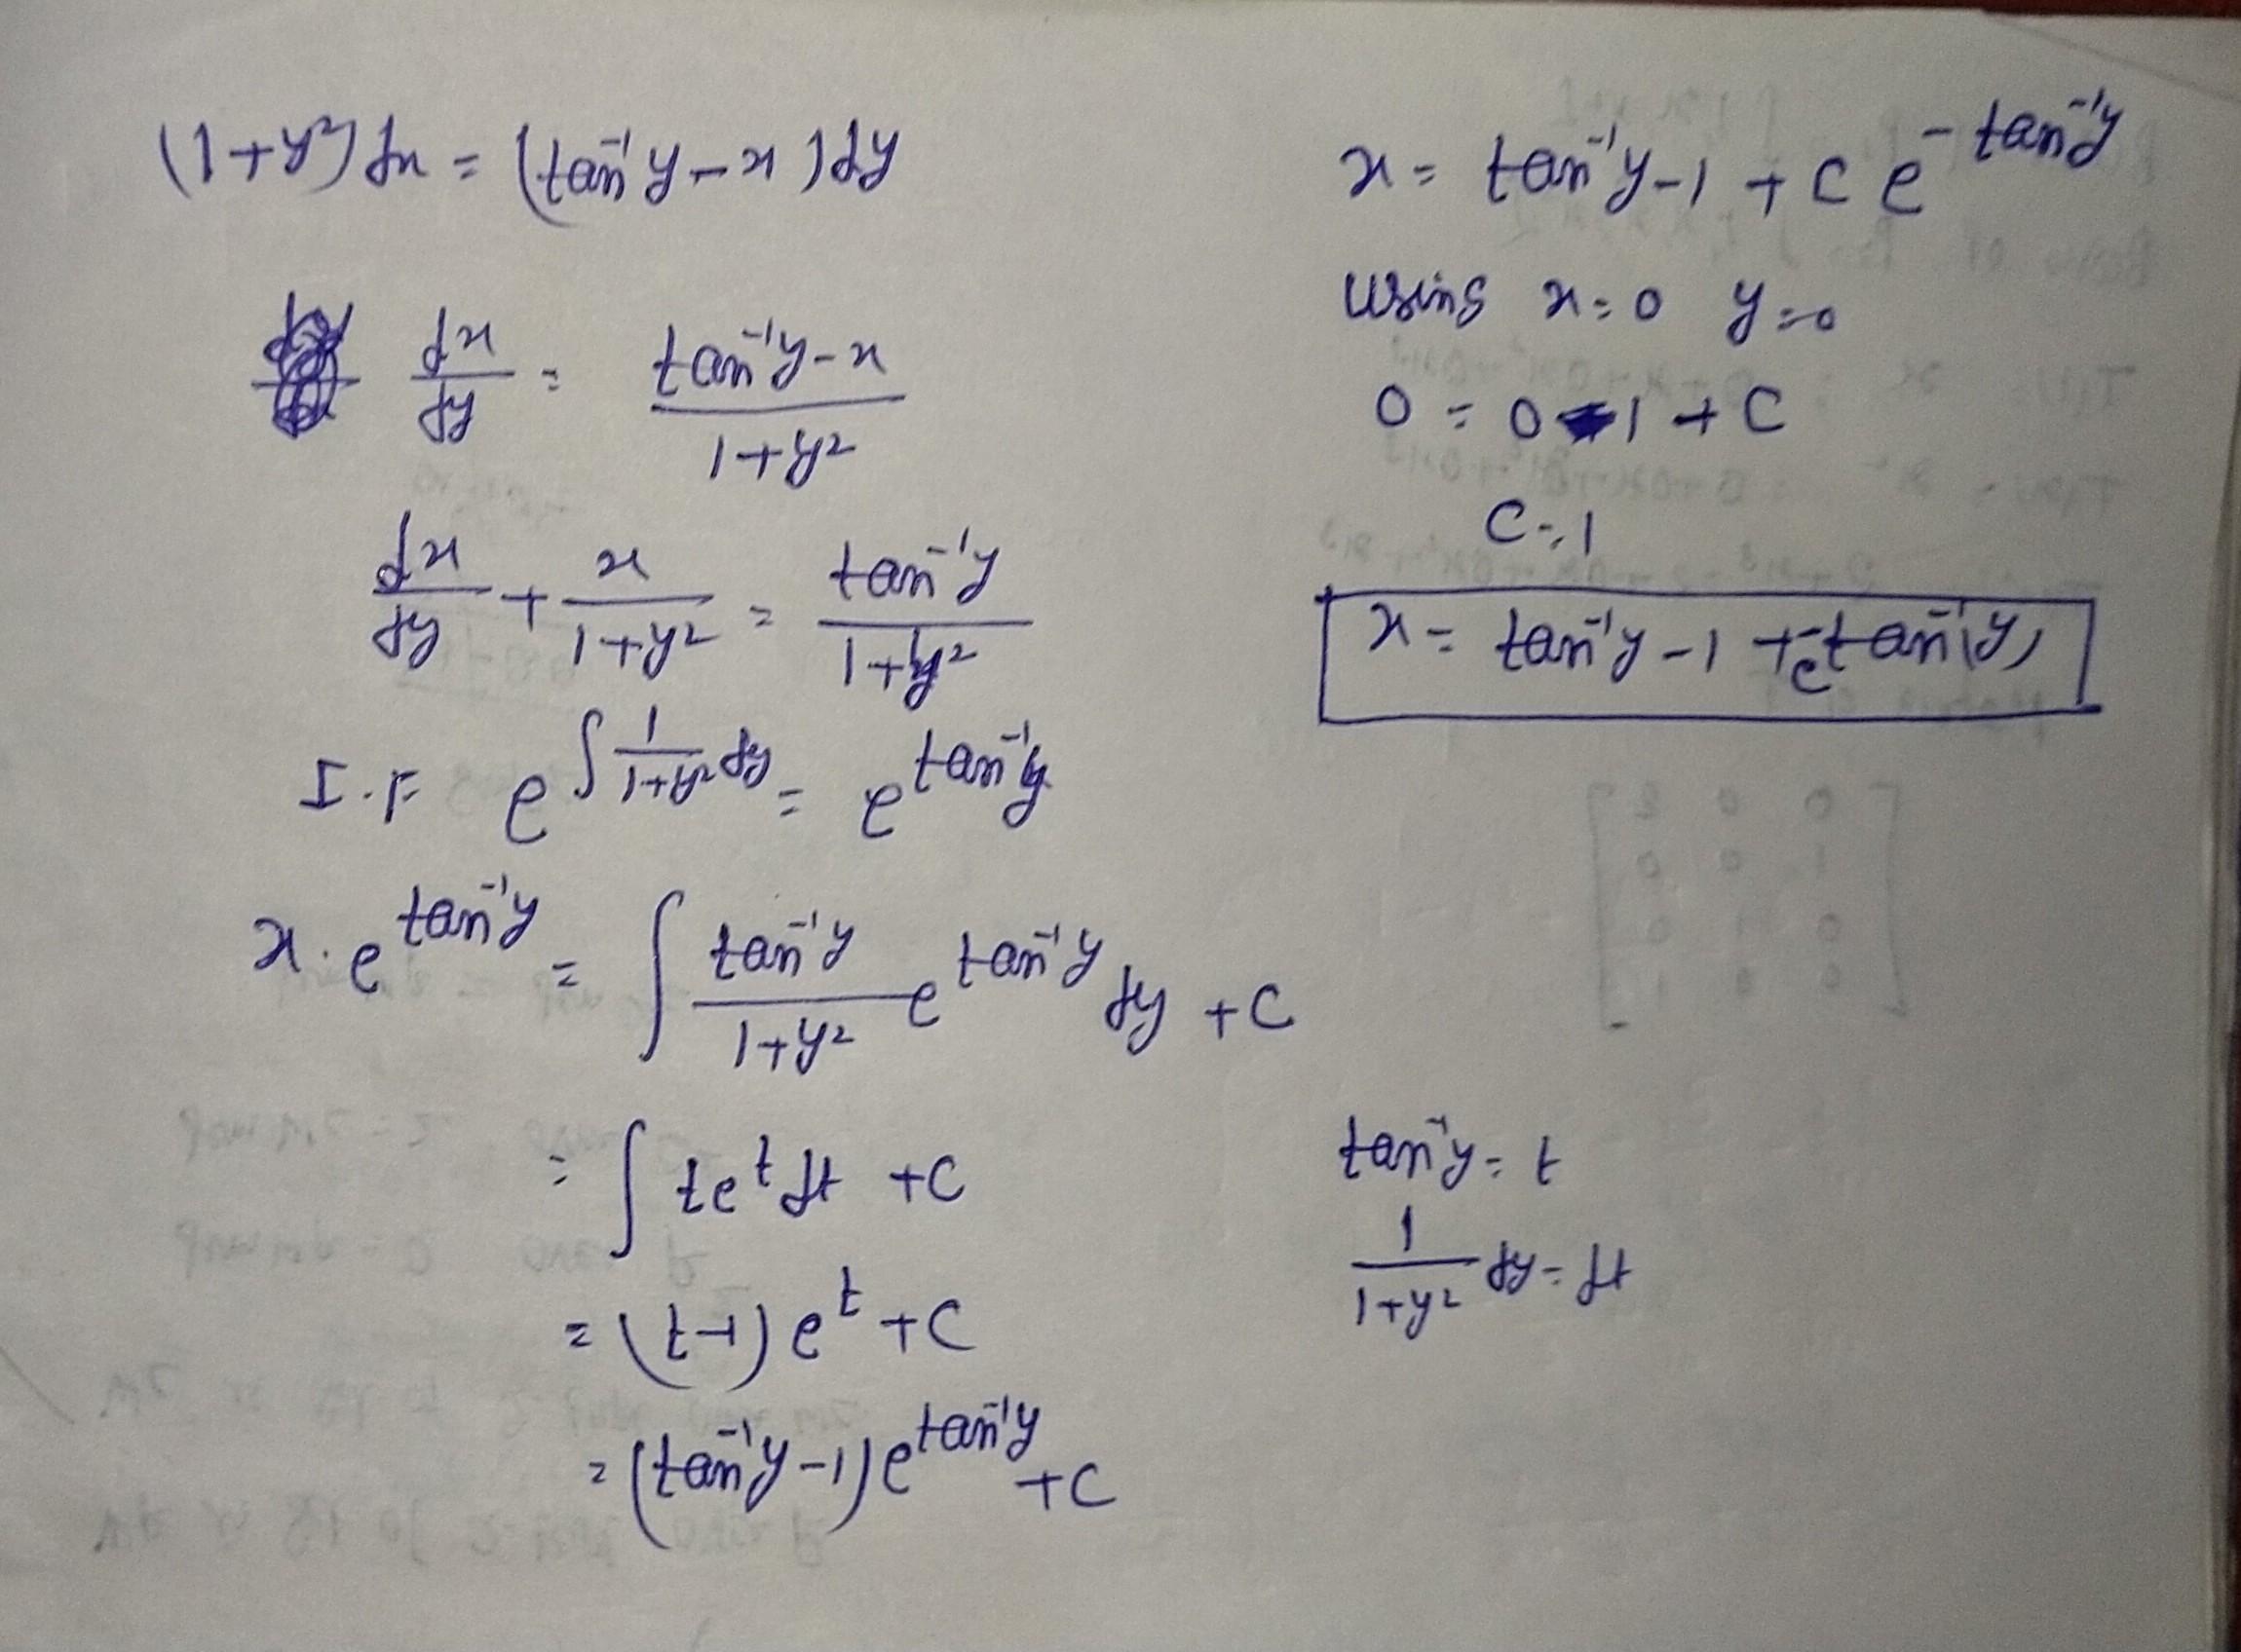 (1+y²)dx = (tan⁻¹y - x)dy
dx/dy = (tan⁻¹y - x)/(1+y²)
dx/dy + x/(1+y²) = tan⁻¹y/(1+y²)
I.F e^(∫ 1/(1+y²) dy) = e^(tan⁻¹y)
x.e^(tan⁻¹y) = ∫ tan⁻¹y/(1+y²) e^(tan⁻¹y) dy + C
= ∫ te^t dt + C
= (t-1)e^t + C
= (tan⁻¹y - 1)e^(tan⁻¹y) + C
x = tan⁻¹y - 1 + C e^(-tan⁻¹y)
using x=0 y=0
0 = 0 - 1 + C
C = 1
x = tan⁻¹y - 1 + e^(-tan⁻¹(y))
tan⁻¹y = t
1/(1+y²) dy = dt